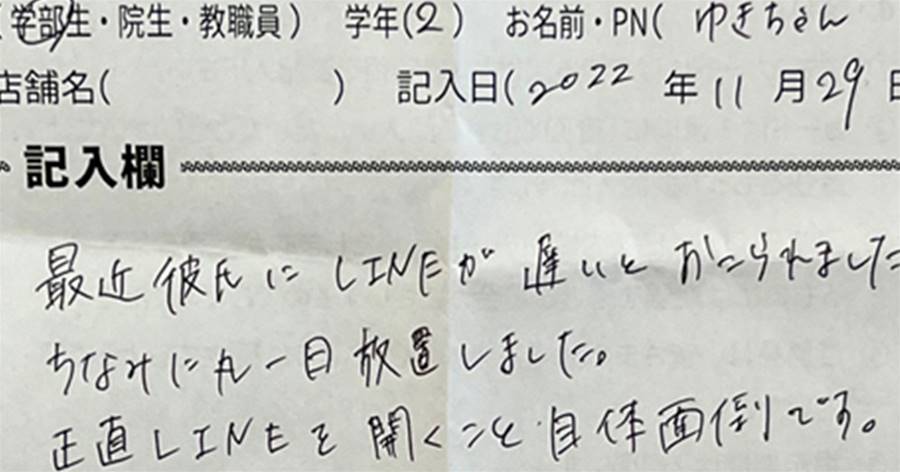 (学部生・院生・教職員) 学年(2) お名前・PN( ゆきちゃん
店舗名( ) 記入日( 2022 年 11 月 29 日
記入欄
最近彼氏にLINEが遅いとおこられました
ちなみに丸一日放置しました。
正直LINEを開くこと自体面倒です。